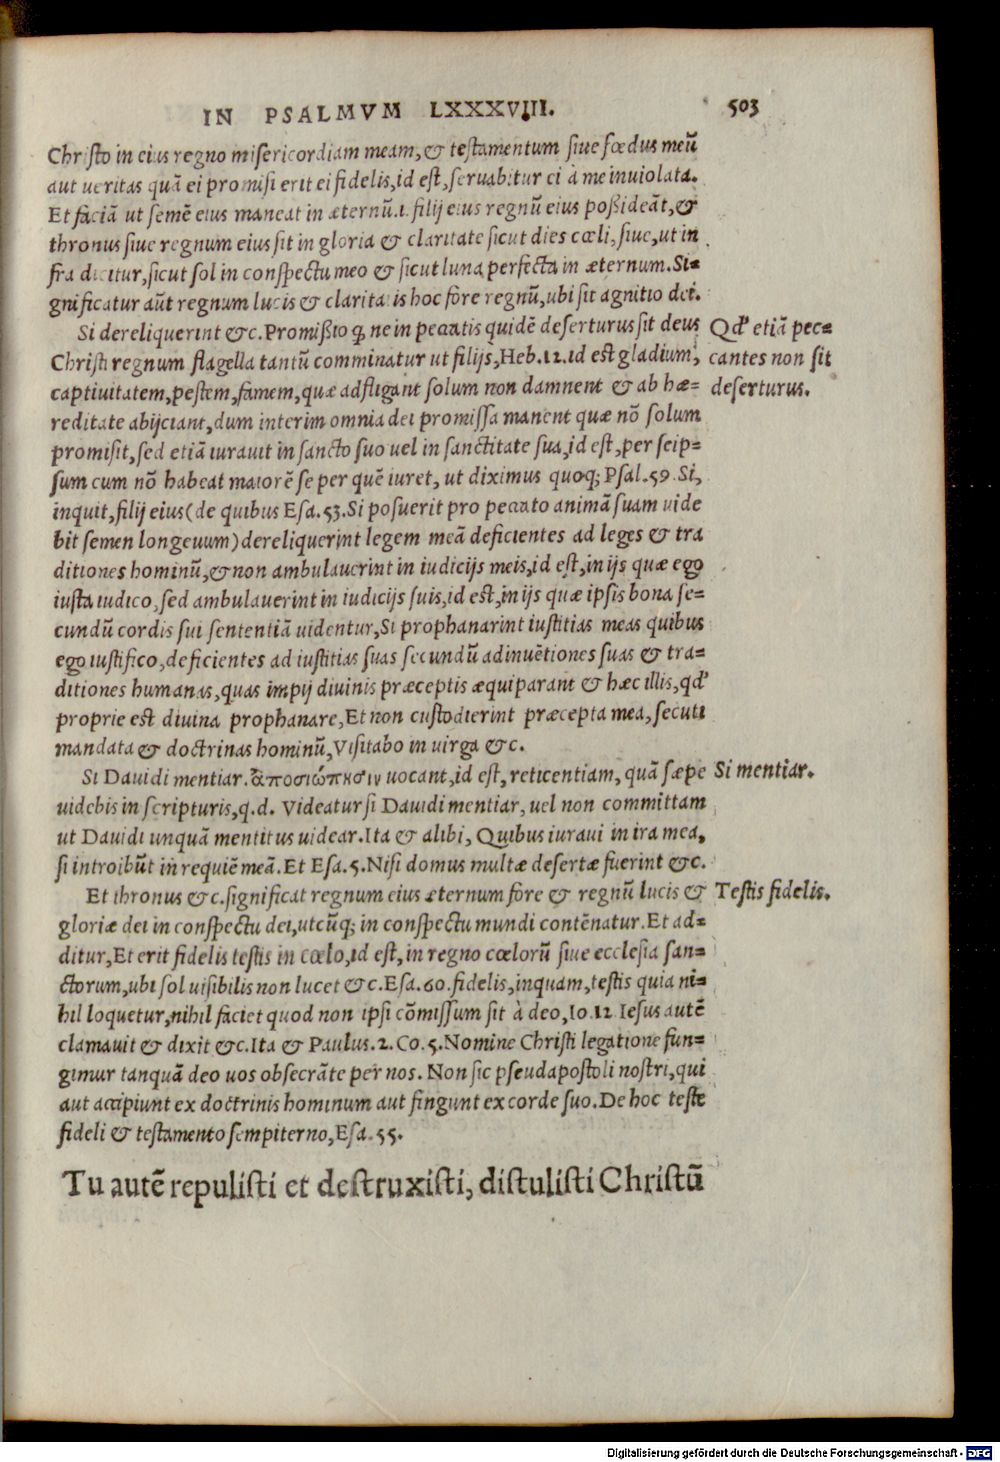 IN PSALMVM LXXXVIII. 503
Christo in eius regno misericordiam meam, & testamentum siue fœdus meũ
aut ueritas quã ei promisi erit ei fidelis, id est, seruabitur ei à me inuiolata.
Et faciã ut semẽ eius maneat in æternũ. i. filij eius regnũ eius poßideãt, &
thronus siue regnum eius sit in gloria & claritate sicut dies cœli, siue, ut in
fra dicitur, sicut sol in conspectu meo & sicut luna perfecta in æternum. Si=
gnificatur aũt regnum lucis & claritatis hoc fore regnũ, ubi sit agnitio dei.
Si dereliquerint &c. Promißio ꝙ ne in peccatis quidẽ deserturus sit deus
Qđ etiã pec=
Christi regnum flagella tantũ comminatur ut filijs, Heb. 12. id est gladium,
cantes non sit
captiuitatem, pestem, famem, quæ adfligant solum non damnent & ab hæ=
deserturus.
reditate abijciant, dum interim omnia dei promissa manent quæ nõ solum
promisit, sed etiã iurauit in sancto suo uel in sanctitate sua, id est, per seip=
sum cum nõ habeat maiorẽ se per quẽ iuret, ut diximus quoq; Psal. 59. Si,
inquit, filij eius (de quibus Esa. 53. Si posuerit pro peccato animã suam uide
bit semen longeuum) dereliquerint legem meã deficientes ad leges & tra
ditiones hominũ, & non ambulauerint in iudicijs meis, id est, in ijs quæ ego
iusta iudico, sed ambulauerint in iudicijs suis, id est, in ijs quæ ipsis bona se=
cundũ cordis sui sententiã uidentur, Si prophanarint iustitias meas quibus
ego iustifico, deficientes ad iustitias suas secundũ adinuẽtiones suas & tra=
ditiones humanas, quas impij diuinis præceptis æquiparant & hæc illis, qđ
proprie est diuina prophanare, Et non custodierint præcepta mea, secuti
mandata & doctrinas hominũ, Visitabo in uirga &c.
Si Dauidi mentiar. ἀποσιώπησιν uocant, id est, reticentiam, quã sæpe
Si mentiar.
uidebis in scripturis, q.d. Videatur si Dauidi mentiar, uel non committam
ut Dauidi unquã mentitus uidear. Ita & alibi, Quibus iuraui in ira mea,
si introibũt in requiẽ meã. Et Esa. 5. Nisi domus multæ desertæ fuerint &c.
Et thronus &c. significat regnum eius æternum fore & regnũ lucis &
Testis fidelis.
gloriæ dei in conspectu dei, utcũq; in conspectu mundi contẽnatur. Et ad=
ditur, Et erit fidelis testis in cœlo, id est, in regno cœlorũ siue ecclesia san=
ctorum, ubi sol uisibilis non lucet &c. Esa. 60. fidelis, inquam, testis quia ni=
hil loquetur, nihil faciet quod non ipsi cõmissum sit à deo, Io. 12. Iesus autẽ
clamauit & dixit &c. Ita & Paulus. 2. Co. 5. Nomine Christi legatione fun=
gimur tanquã deo uos obsecrãte per nos. Non sic pseudapostoli nostri, qui
aut accipiunt ex doctrinis hominum aut fingunt ex corde suo. De hoc teste
fideli & testamento sempiterno, Esa. 55.
Tu autẽ repulisti et destruxisti, distulisti Christũ
Digitalisierung gefördert durch die Deutsche Forschungsgemeinschaft - DFG